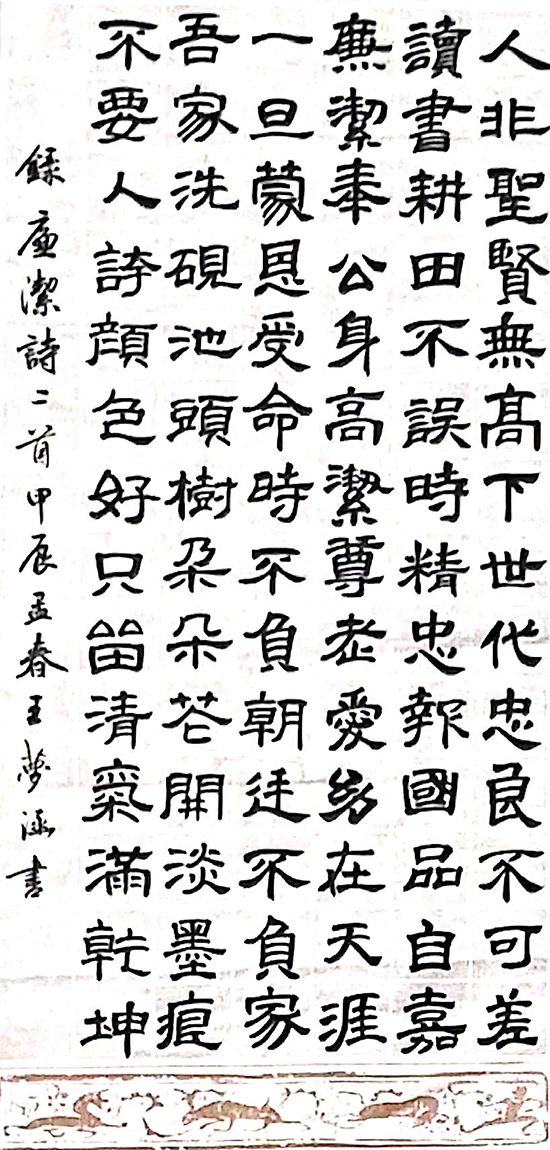 人非聖賢無高下世代忠良不可差
讀書耕田不誤時精忠報國品自嘉
廉潔奉公身高潔尊老愛幼在天涯
一旦蒙恩受命時不負朝廷不負家
吾家洗硯池頭樹朶朶花開淡墨痕
不要人誇顔色好只留清氣滿乾坤
錄廉潔詩二首甲辰孟春王夢涵書